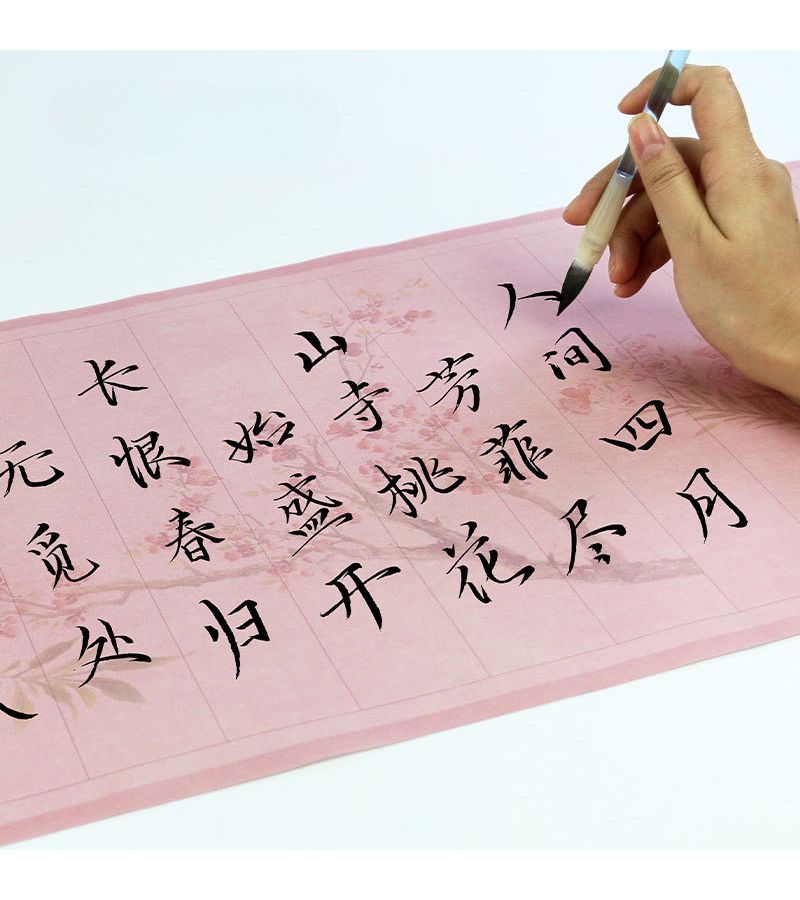 人间四月
芳菲尽
山寺桃花
始盛开
长恨春归
无觅处